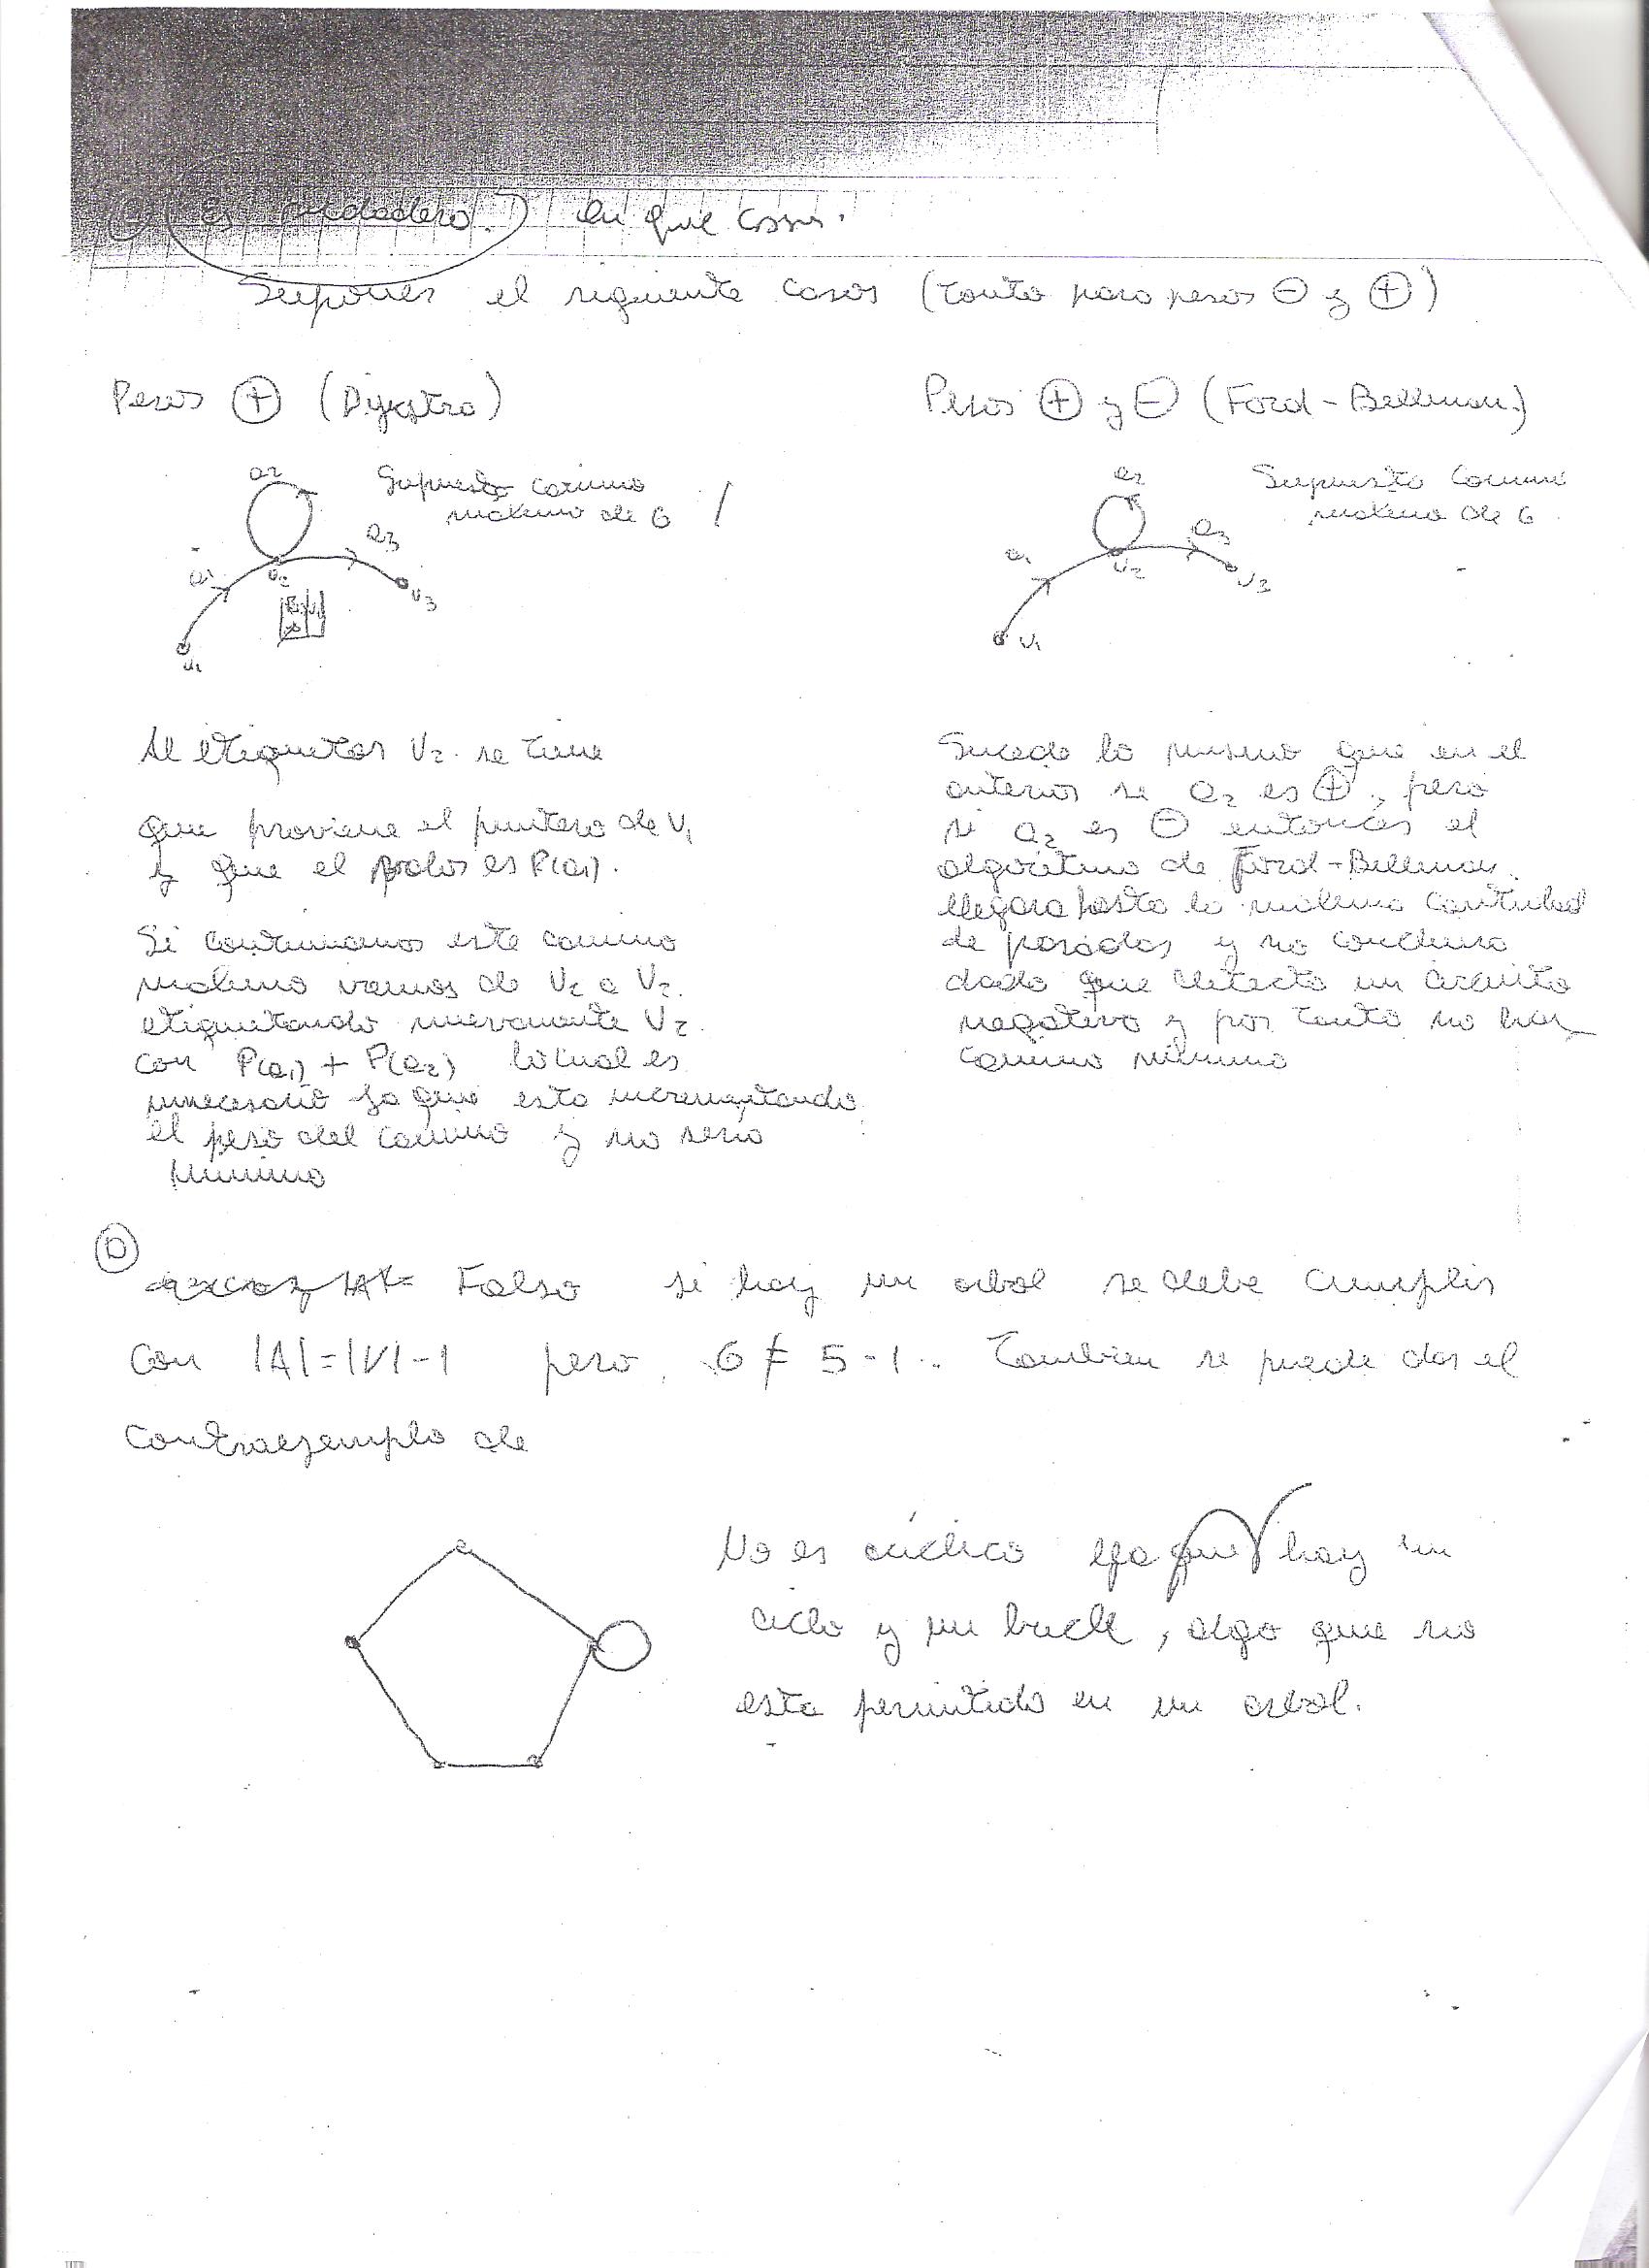 Es verdadero. en que casos.
Suponer el siguiente casos (tanto para pesos ⊖ y ⊕)
Pesos ⊕ (Dijkstra)
a2
Supuesto camino
minimo de G
a3
a1
v2
v3
v1
Al etiquetar V2 se tiene
que proviene el puntero de V1
y que el valor es P(a1).
Si continuamos este camino
minimo vamos de V2 a V2
etiquetando nuevamente V2
con P(a1) + P(a2) lo cual es
innecesario ya que esta incrementando
el peso del camino y no seria
minimo
Pesos ⊕ y ⊖ (Ford-Bellman)
a2
Supuesto camino
minimo de G
a1
a3
v2
v3
v1
Sucede lo mismo que en el
anterior si a2 es ⊕, pero
si a2 es ⊖ entonces el
algoritmo de Ford-Bellman
llegara hasta la maxima cantidad
de pasadas y no concluira
dado que detecta un circuito
negativo y por tanto no hay
camino minimo
D
Falso si hay un arbol se debe cumplir
con |A|=|V|-1 pero 6 ≠ 5-1. Tambien se puede dar el
contraejemplo de
No es aciclico ya que hay un
ciclo y un bucle, algo que no
esta permitido en un arbol.